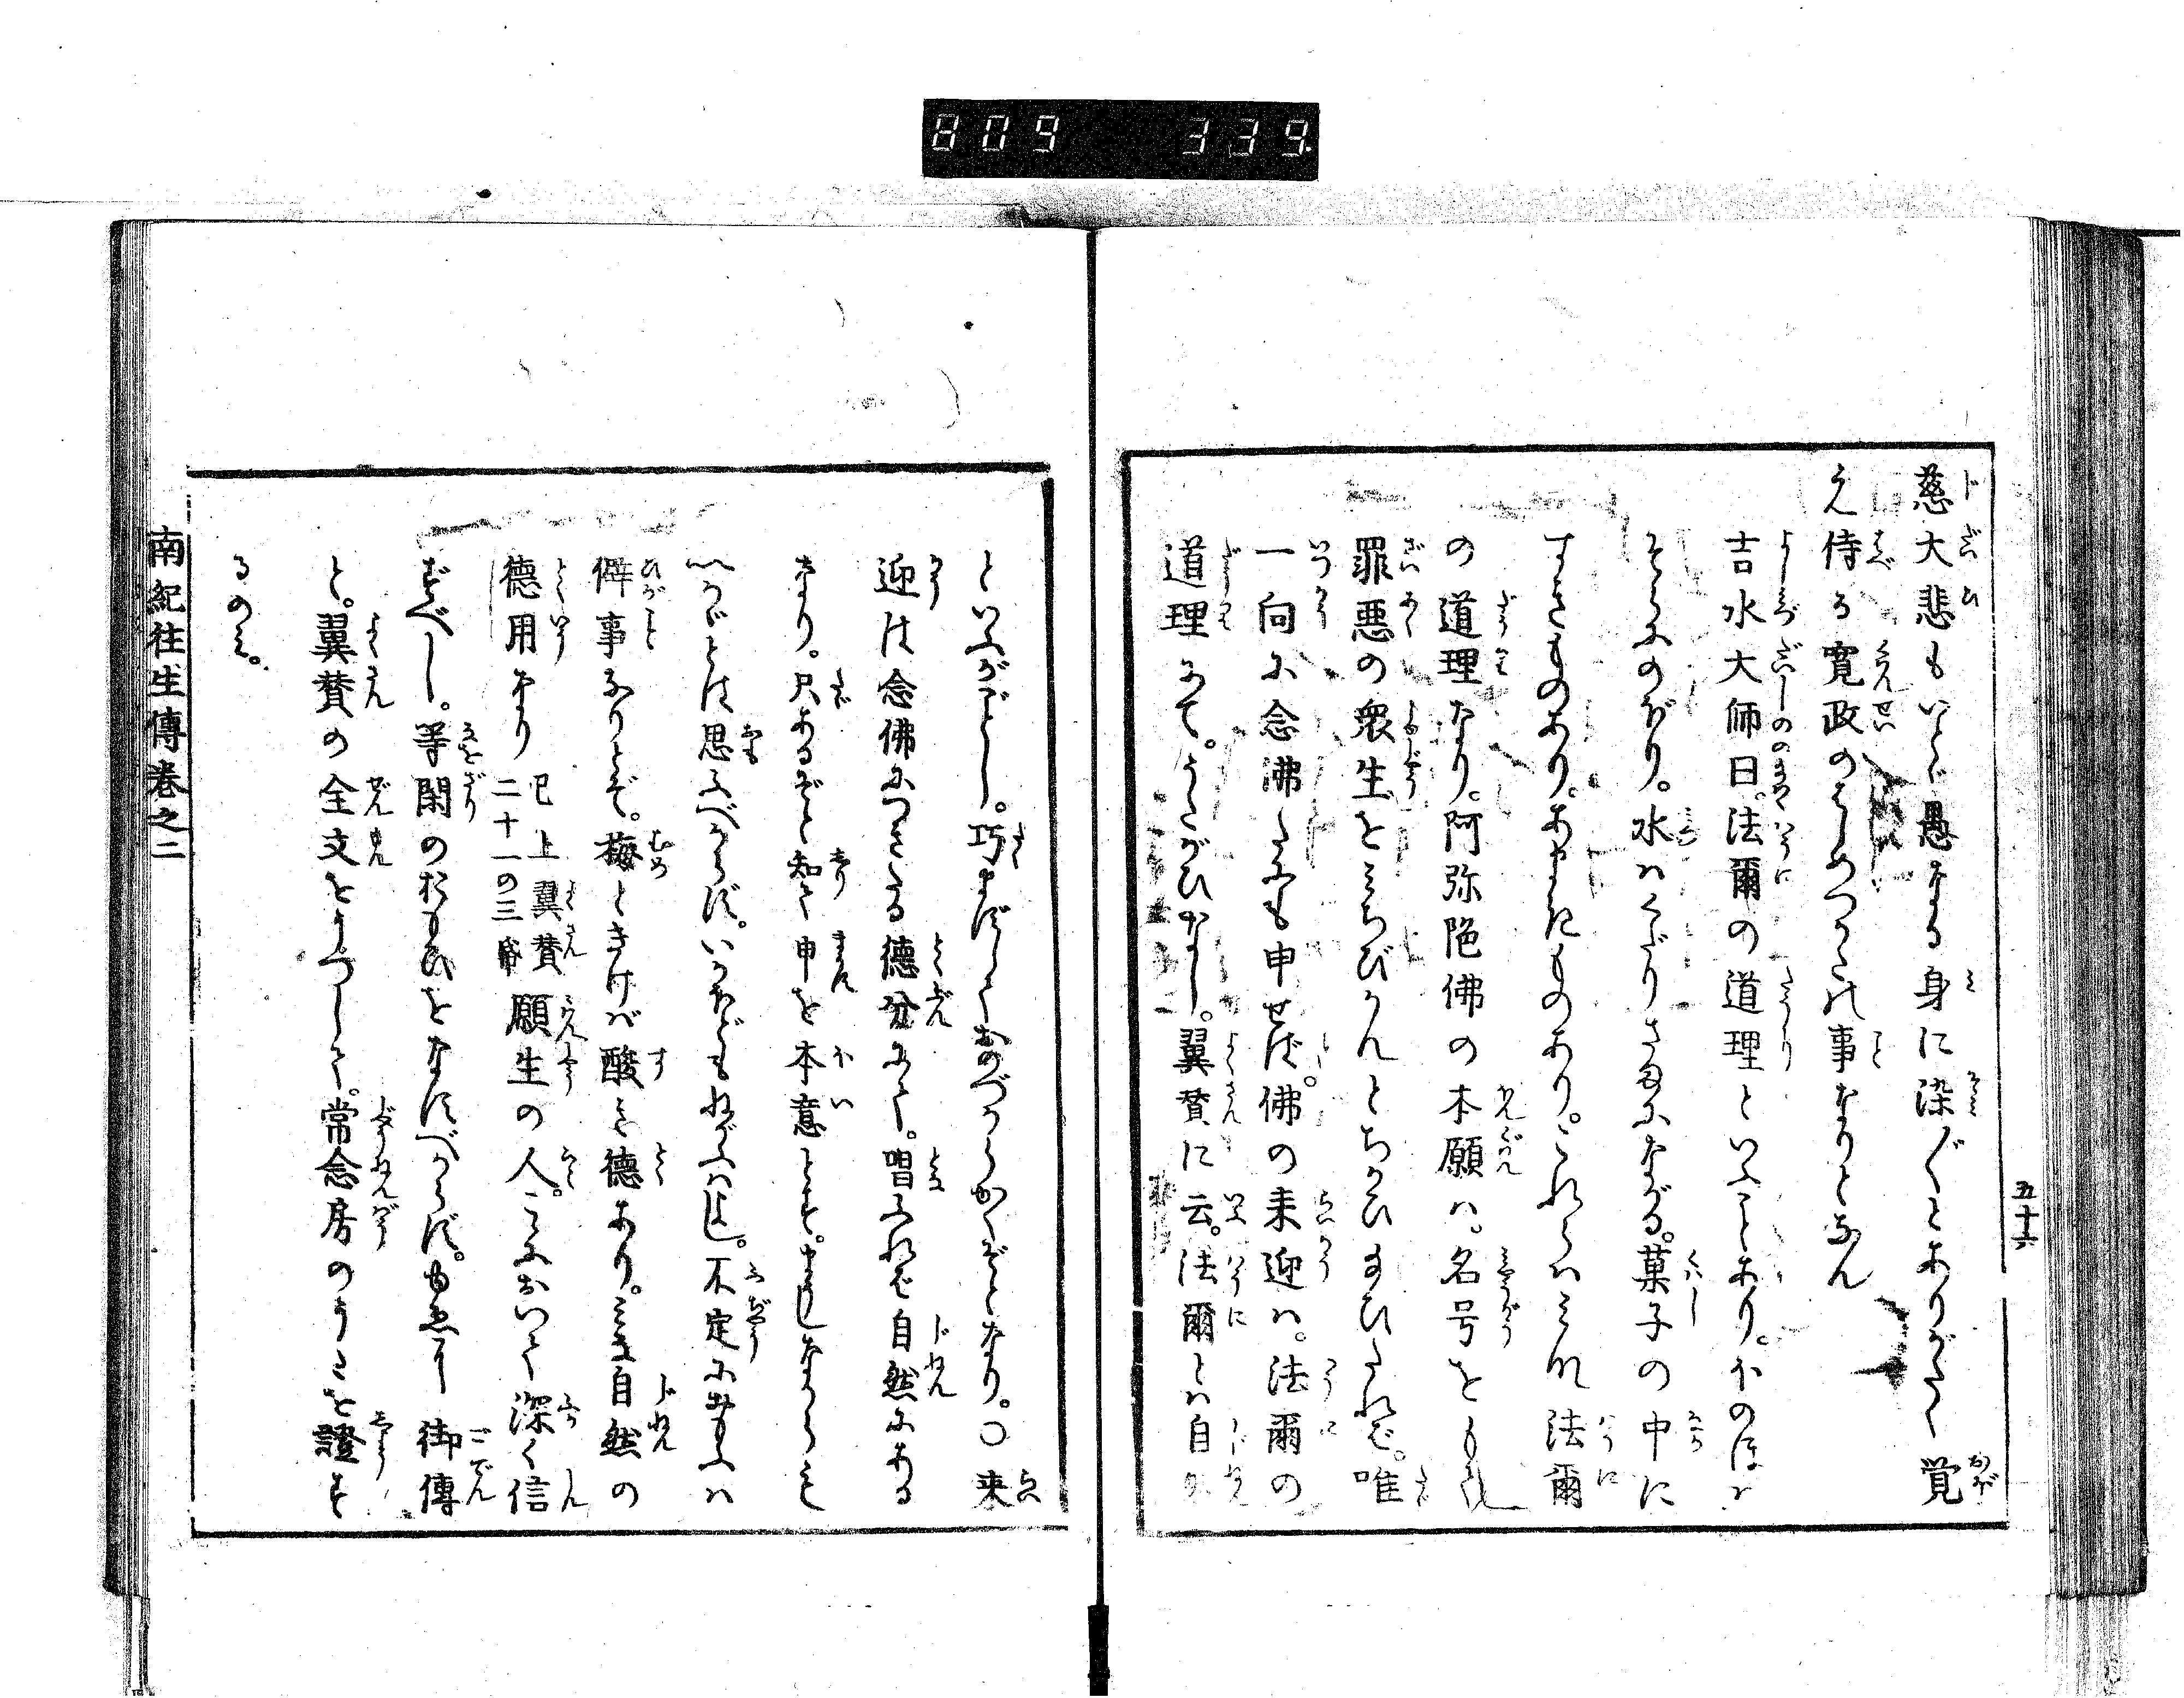 809 339
五十六
慈大悲もいとゞ愚なる身に染〴〵とありがたく覚
え侍る寛政のはじめつかたの事なりとなん
吉水大師曰。法爾の道理といふことあり。ほのほは
そらにのぼり。水はくだりさまにながる。菓子の中に
すきものあり。あまきものあり。これらはみな法爾
の道理なり。阿弥陀佛の本願は。名号をもて
罪悪の衆生をみちびかんとちかひ給ひたれば。唯
一向に念佛だにも申せば。佛の来迎は。法爾の
道理にて。うたがひなし。翼賛に云。法爾とは自
といふがごとし。巧まずしておのづからかくぞとなり。〇来
迎は念佛につきたる徳分にて。唱ふれば自然にある
なり。只あるぞと知て申を本意とす。なましなからんも
いかゞとは思ふべからず。いかほどもねがふはよし。不定におもふは
僻事なりとぞ。梅ときけば酸き徳あり。みな自然の
徳用なり 已上翼賛二十一の三 願生の人。こゝにおいて深く信
ずべし。等閑のおもひをなすべからず。
御傳
と。翼賛の全文をうつして。常念房のうたを證す
るのみ。
南紀往生傳巻之二